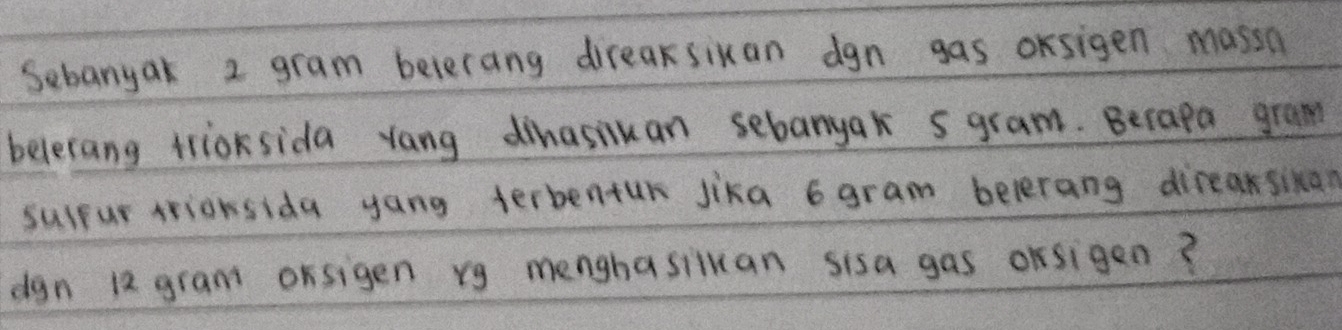 Sebanyak 2 gram belerang direaksikan dgn gas oksigen massa
belerang trioksida yang dihasilkan sebanyak 5 gram. Berapa gram
sulfur trioksida yang terbentuk jika 6 gram belerang direaksikan
dgn 12 gram oksigen yg menghasilkan sisa gas oksigen?